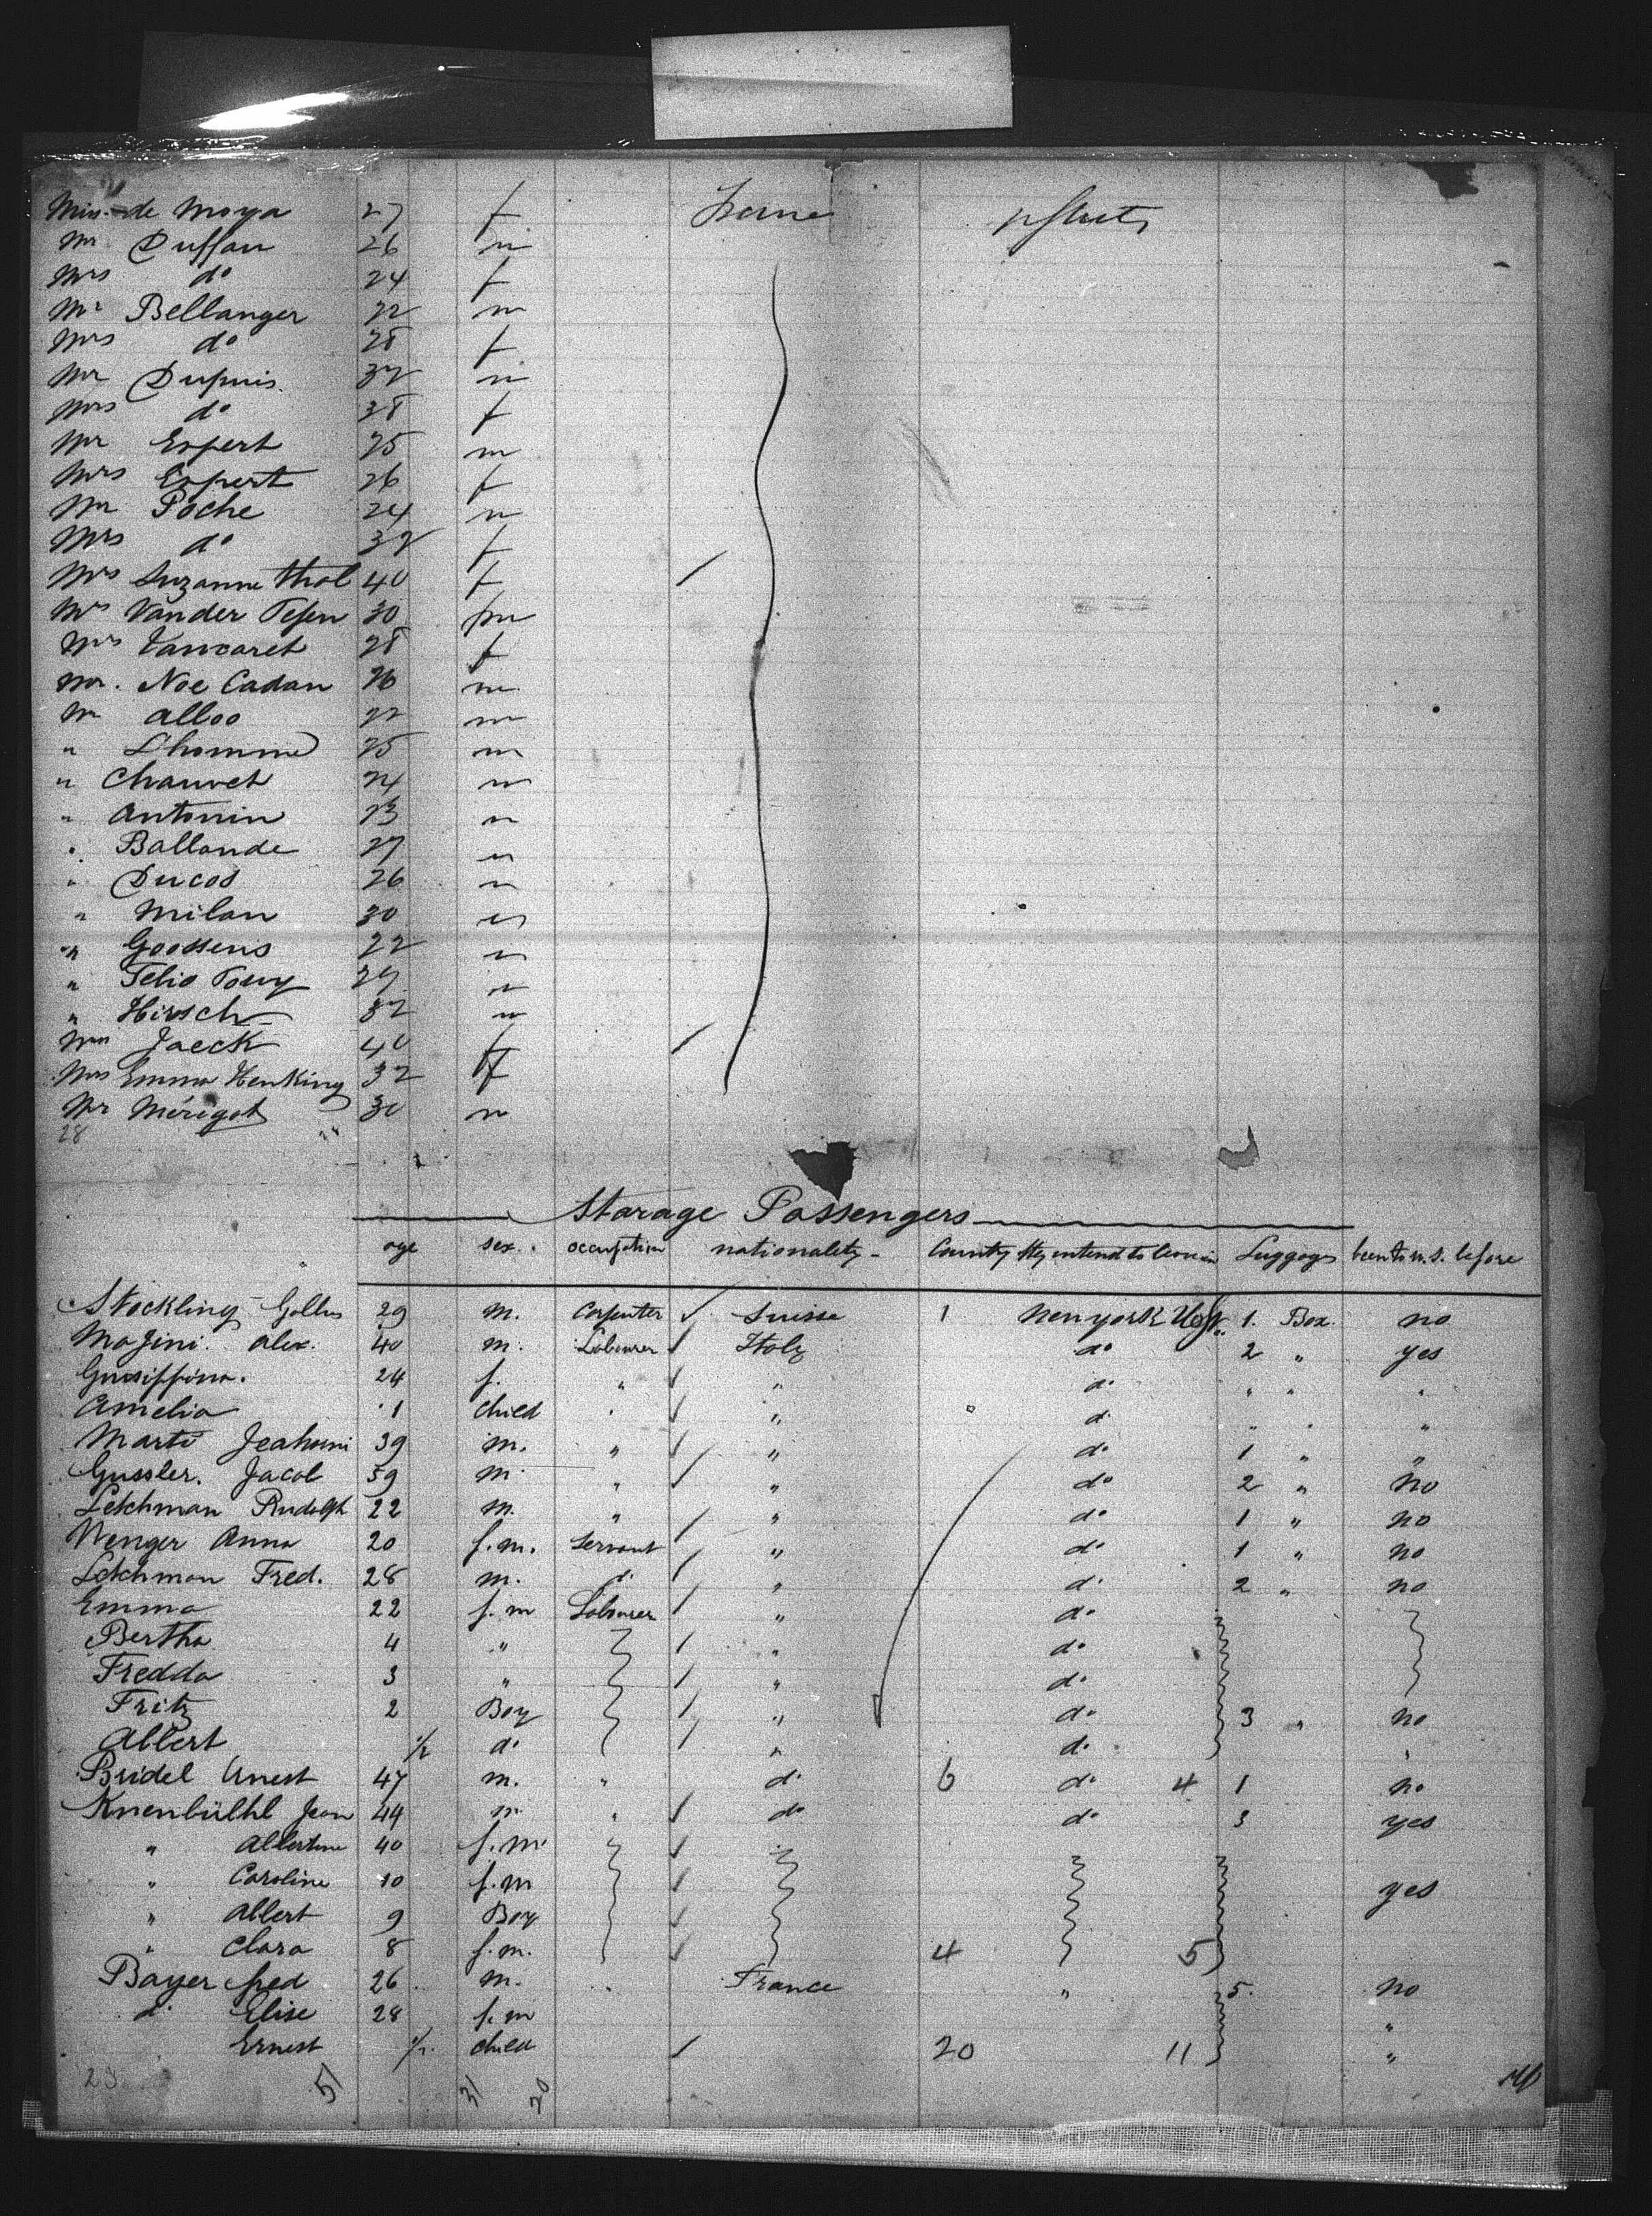 Miss de Moya 27 f
Mr Duffau 26 m
Mrs do 24 f
Mr Bellanger 22 m
Mrs do 28 f
Mr Dupuis 32 m
Mrs do 38 f
Mr Espert 25 m
Mrs Espert 26 f
Mr Poche 24 m
Mrs do 32 f
Mrs Suzanne Thal 40 f
Vander 30
Mrs 28 f
Mr. Noe Cadan 26 m
Mr Alloo 22 m
" Lhomme 25 m
" Chauvet 24 m
" Antonin 23 m
" Ballande 27 m
" Ducos 26 m
" Milan 30 m
" Goossens 22 m
" 29 m
" Hirsch 32 m
Jaeck 40 f
Mrs Emma Henking 32 f
Mr Mérigot 30 m
28
Starage Passengers
age sex. occupation nationality Country they intend to Luggage been to U.S. before
Stockling Gallus 29 m. Carpenter Suisse 1 New york 1. Box. no
Alex. 40 m. Labourer Italy do 2 " yes
24 f. " " do " " "
Amelia 1 child " " d. " " "
Marti 39 m. " " do 1 " "
Gussler. Jacob 59 m. " " do 2 " no
Letchman Rudolph 22 m. " " do 1 " no
Wenger Anna 20 f.m. Servant " do 1 " no
Letchman Fred. 28 m. d. " d. 2 " no
Emma 22 f.m Labourer " do
Bertha 4 " " do
Fredda 3 " " do
Fritz 2 Boy " do 3 " no
Albert 1/2 do " do "
Bridel 47 m. " do 6 do 4 1 no
Knenbülhl Jean 44 m. " do do 3 yes
" Albertine 40 f.m.
" Caroline 10 f.m yes
" Albert 9 Boy
" Clara 8 f.m. 4 5
Bayer fred 26 m. " France " 5. no
d. Elise 28 f.m "
Ernest 1/2. child 20 11 "
23 51 31 20